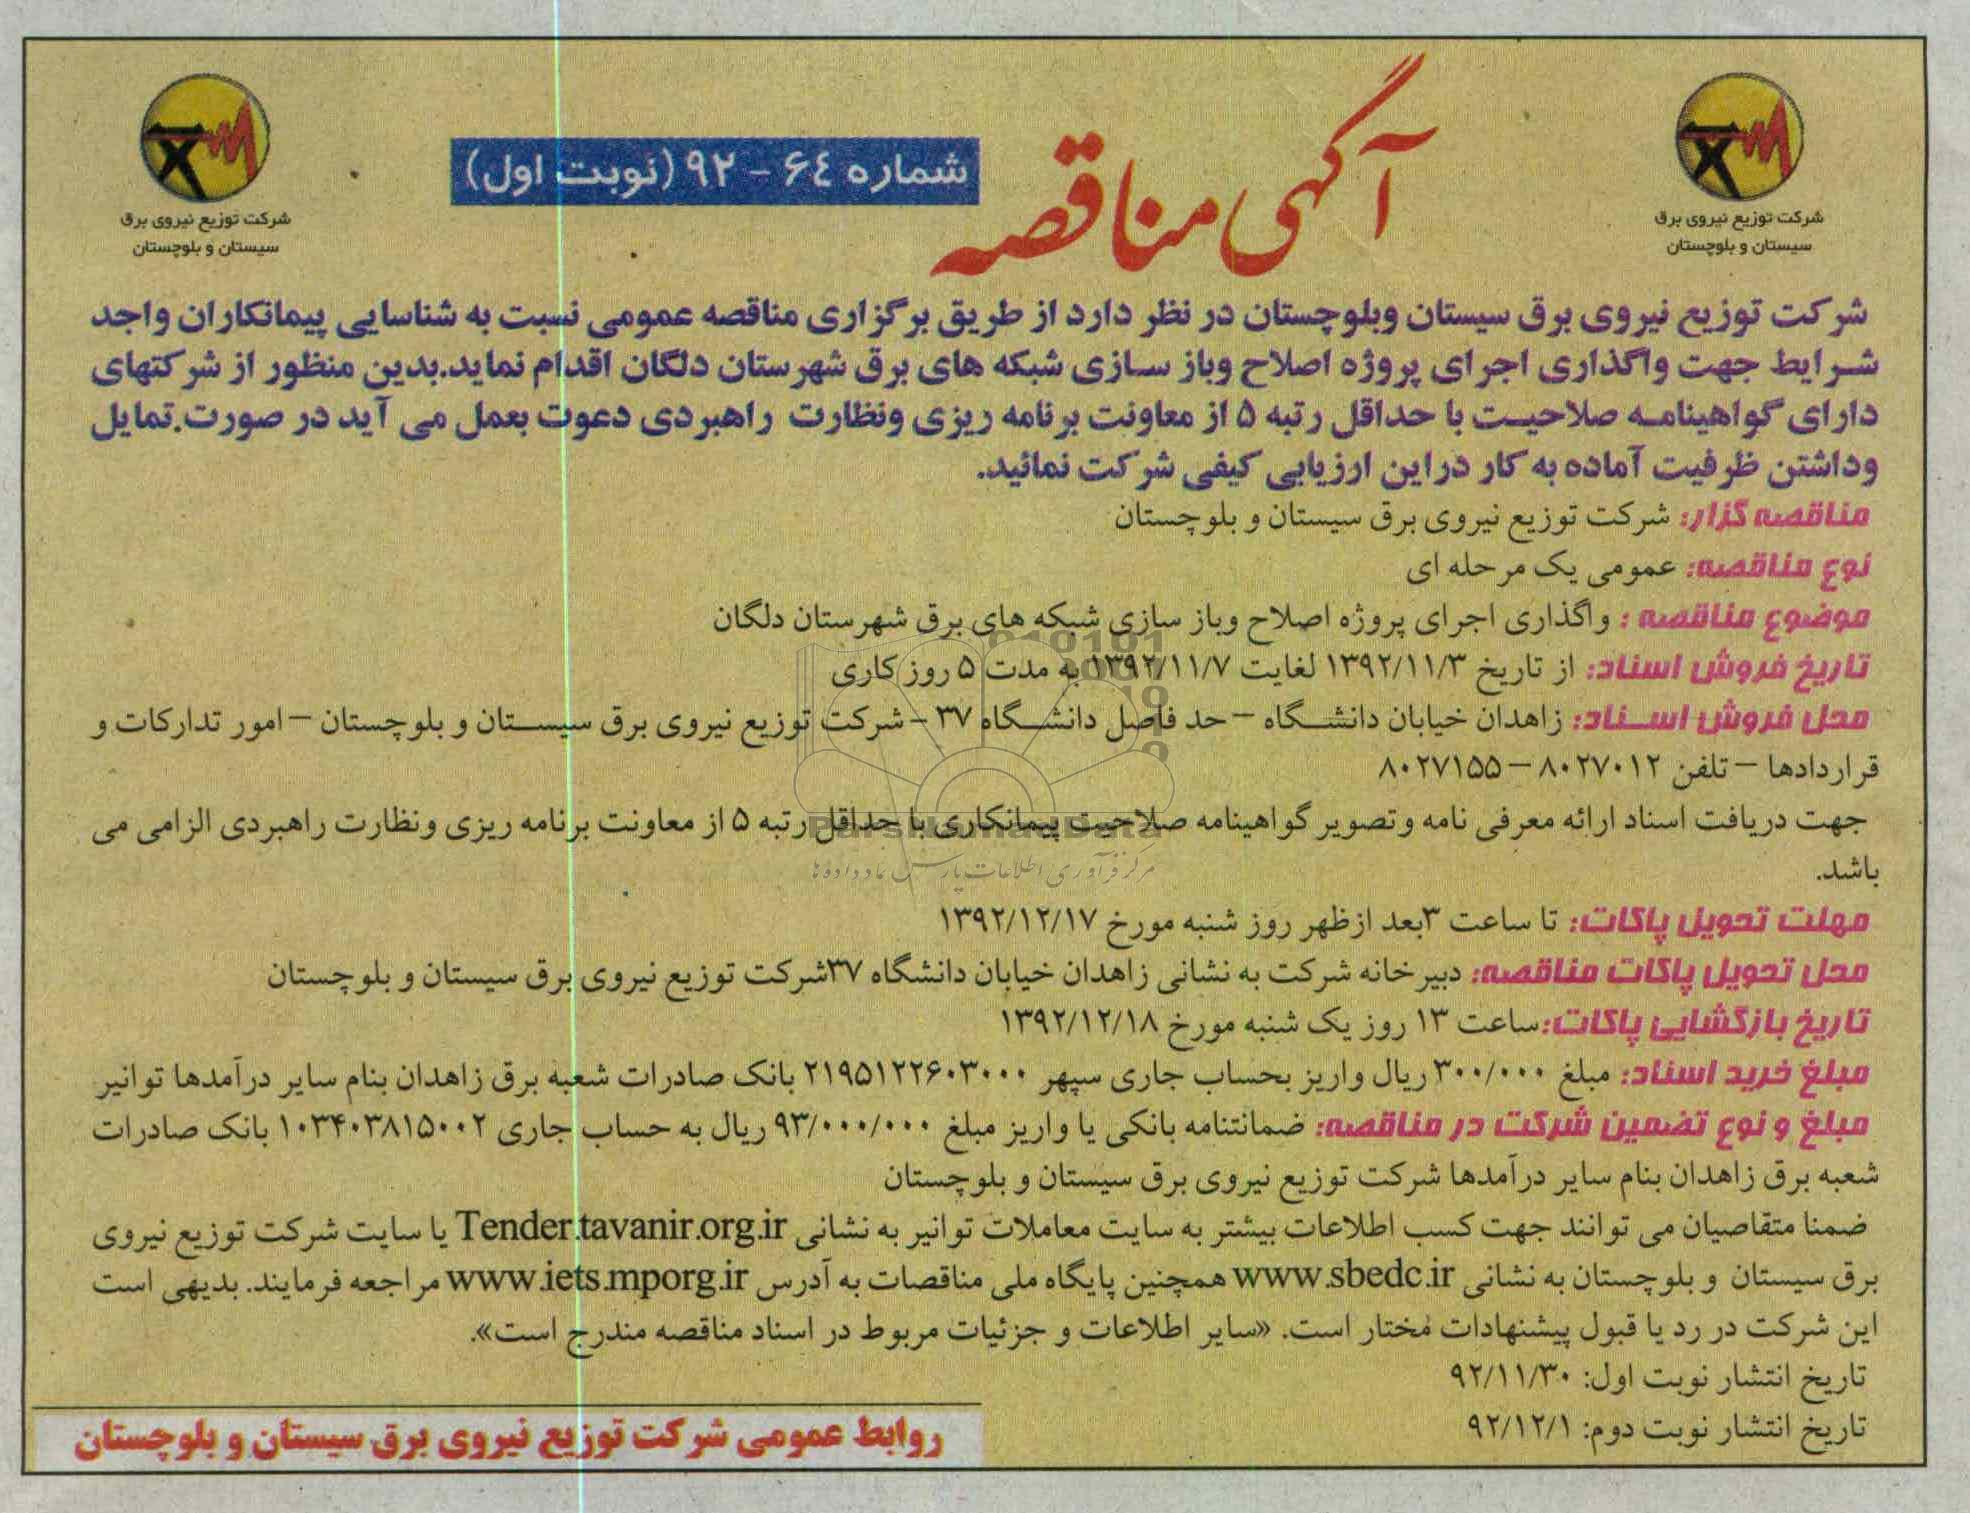 آگهی مناقصه
شماره ۶۴ - ۹۲ (نوبت اول)
شرکت توزیع نیروی برق
سیستان و بلوچستان
شرکت توزیع نیروی برق
سیستان و بلوچستان
شرکت توزیع نیروی برق سیستان وبلوچستان در نظر دارد از طریق برگزاری مناقصه عمومی نسبت به شناسایی پیمانکاران واجد
شرایط جهت واگذاری اجرای پروژه اصلاح وباز سازی شبکه های برق شهرستان دلگان اقدام نماید.بدین منظور از شرکتهای
دارای گواهینامه صلاحیت با حداقل رتبه ۵ از معاونت برنامه ریزی ونظارت راهبردی دعوت بعمل می آید در صورت تمایل
وداشتن ظرفیت آماده به کار دراین ارزیابی کیفی شرکت نمائید.
مناقصه گزار: شرکت توزیع نیروی برق سیستان و بلوچستان
نوع مناقصه: عمومی یک مرحله ای
موضوع مناقصه : واگذاری اجرای پروژه اصلاح وباز سازی شبکه های برق شهرستان دلگان
تاریخ فروش اسناد: از تاریخ ۱۳۹۲/۱۱/۳ لغایت ۱۳۹۲/۱۱/۷ به مدت ۵ روز کاری
محل فروش اسناد: زاهدان خیابان دانشگاه – حد فاصل دانشگاه ۳۷ – شرکت توزیع نیروی برق سیستان و بلوچستان – امور تدارکات و
قراردادها – تلفن ۸۰۲۷۰۱۲ – ۸۰۲۷۱۵۵
جهت دریافت اسناد ارائه معرفی نامه وتصویر گواهینامه صلاحیت پیمانکاری با حداقل رتبه ۵ از معاونت برنامه ریزی ونظارت راهبردی الزامی می
باشد.
مرکز فرآوری اطلاعات پارس نماد داده ها
مهلت تحویل پاکات: تا ساعت ۳بعد ازظهر روز شنبه مورخ ۱۳۹۲/۱۲/۱۷
محل تحویل پاکات مناقصه: دبیرخانه شرکت به نشانی زاهدان خیابان دانشگاه ۳۷شرکت توزیع نیروی برق سیستان و بلوچستان
تاریخ بازگشایی پاکات:ساعت ۱۳ روز یک شنبه مورخ ۱۳۹۲/۱۲/۱۸
مبلغ خرید اسناد: مبلغ ۳۰۰/۰۰۰ ریال واریز بحساب جاری سپهر ۲۱۹۵۱۲۲۶۰۳۰۰۰ بانک صادرات شعبه برق زاهدان بنام سایر درآمدها توانیر
مبلغ و نوع تضمین شرکت در مناقصه: ضمانتنامه بانکی یا واریز مبلغ ۹۳/۰۰۰/۰۰۰ ریال به حساب جاری ۱۰۳۴۰۳۸۱۵۰۰۲ بانک صادرات
شعبه برق زاهدان بنام سایر درآمدها شرکت توزیع نیروی برق سیستان و بلوچستان
ضمنا متقاصیان می توانند جهت کسب اطلاعات بیشتر به سایت معاملات توانیر به نشانی Tender.tavanir.org.ir یا سایت شرکت توزیع نیروی
برق سیستان و بلوچستان به نشانی www.sbedc.ir همچنین پایگاه ملی مناقصات به آدرس www.iets.mporg.ir مراجعه فرمایند. بدیهی است
این شرکت در رد یا قبول پیشنهادات مختار است. «سایر اطلاعات و جزئیات مربوط در اسناد مناقصه مندرج است».
تاریخ انتشار نوبت اول: ۹۲/۱۱/۳۰
تاریخ انتشار نوبت دوم: ۹۲/۱۲/۱
روابط عمومی شرکت توزیع نیروی برق سیستان و بلوچستان